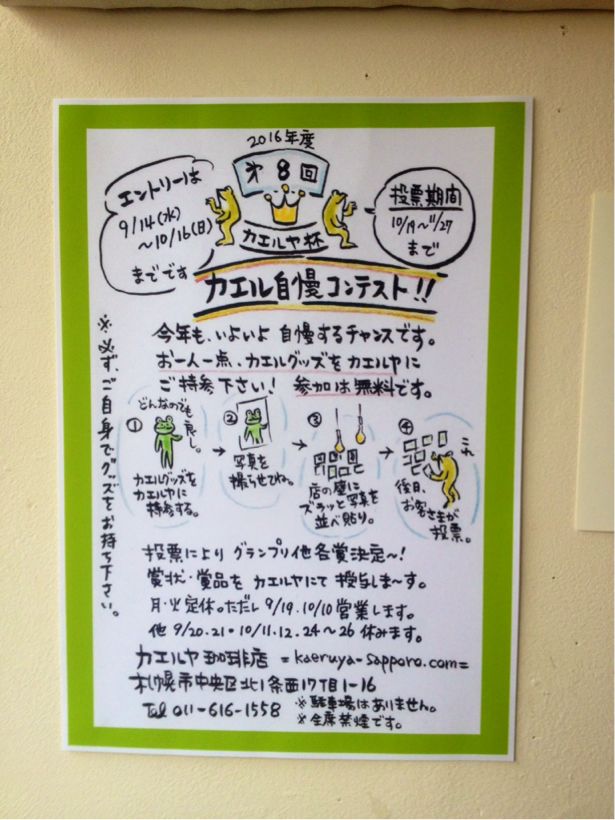 2016年度
第8回
カエルヤ杯
エントリーは
9/14(水)
～10/16(日)
までです
投票期間
10/19～11/27
まで
カエル自慢コンテスト!!
今年も、いよいよ 自慢するチャンスです。
お一人一点、カエルグッズを カエルヤに
ご持参下さい! 参加は無料です。
※必ず、ご自身でグッズをお持ち下さい。
どんなのでも
良し。
①
カエルグッズを
カエルヤに
持参する。
②
写真を
撮らせてね。
③
店の壁に
ズラッと写真を
並べ貼り。
④
これ
後日、
お客さまが
投票。
投票により グランプリ他各賞決定～!
賞状・賞品を カエルヤにて 授与しま～す。
月・火定休。ただし 9/19.10/10 営業します。
他 9/20.21・10/11.12.24～26 休みます。
カエルヤ珈琲店 =kaeruya-sapporo.com=
札幌市中央区北1条西17丁目1-16
Tel 011-616-1558
※駐車場はありません。
※全席禁煙です。